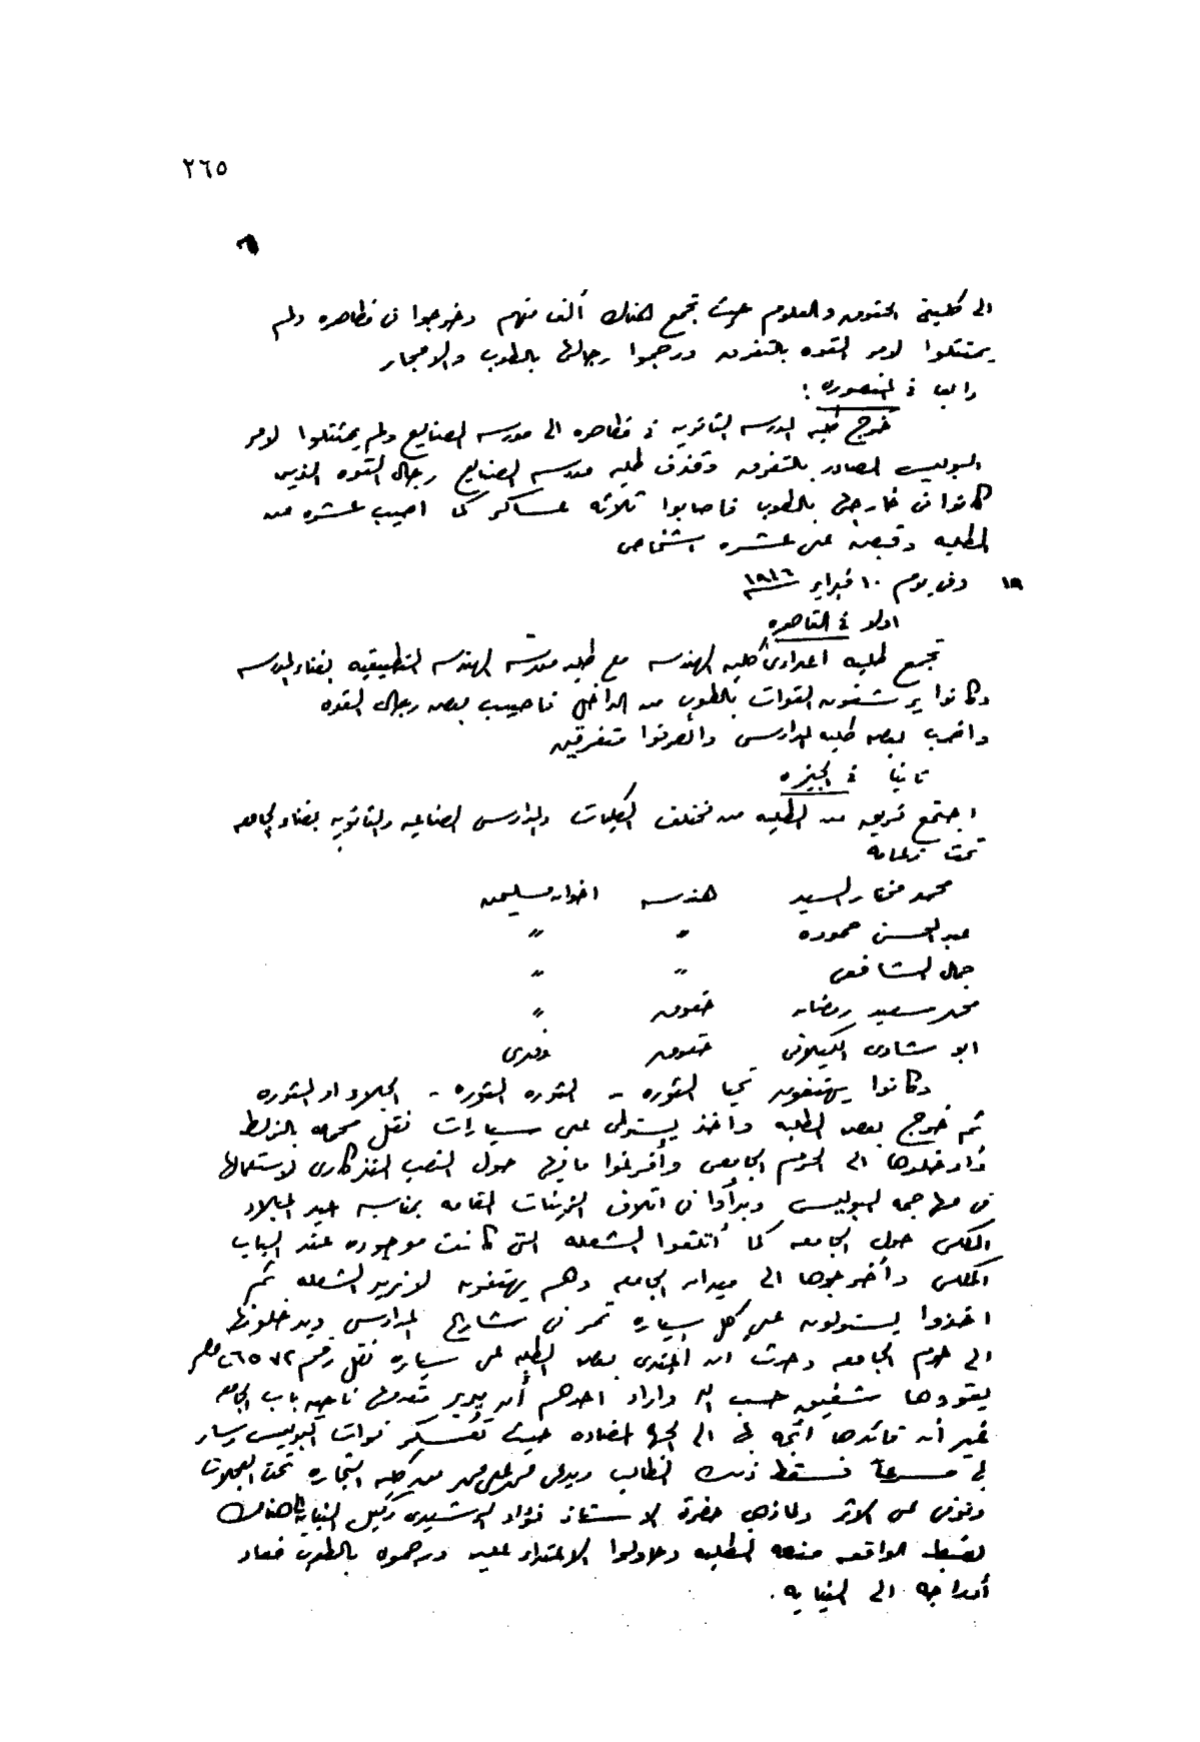 ٢٦٥
٦
الى كليتى الحقوق والعلوم حيث تجمع هناك ألف منهم وخرجوا فى مظاهره ولم
يمتثلوا لامر القوه بالتفرق ورجموا رجالها بالطوب والاحجار
رابعا فى المنصوره :
خرج طلبه المدرسه الثانويه فى مظاهره الى مدرسه الصنايع ولم يمتثلوا لامر
البوليس الصادر بالتفرق وقذف طلبه مدرسه الصنايع رجال القوه الذين
كانوا فى خارجها بالطوب فاصابوا ثلاثه عساكر كما اصيب عشره من
الطلبه وقبض على عشره اشخاص
١٩ وفى يوم ١٠ فبراير ١٩٤٦
اولا فى القاهره
تجمع طلبه اعدادى كليه الهندسه مع طلبه مدرسة الهندسه التطبيقيه بفناء المدرسه
وكانوا يرشقون القوات بالطوب من الداخل فاصيب بعض رجال القوه
واضرب بعض طلبه المدارس وانصرفوا متفرقين
ثانيا فى الجيزه
اجتمع فريق من الطلبه من مختلف الكليات والمدارس الصناعيه والثانويه بفناء الجامعه
تحت زعامة
محمد مختار السيد هندسه اخوان مسلمين
عبد المحسن حموده " "
جمال الشافعى " "
محمد سعيد رمضان حقوق "
ابو شادى الكيلانى حقوق وفدى
وكانوا يهتفون تحيا الثوره - الثوره الثوره - الجلاء او الثوره
ثم خرج بعض الطلبه واخذ يستولى على سيارات نقل محمله بالزلط
وادخلوها الى الحرم الجامعى وأفرغوا ما فيها حول النصب التذكارى لاستعمالها
فى مهاجمه البوليس وبدأوا فى اتلاف الزينات المقامه بمناسبه عيد الميلاد
الملكى حول الجامعه كما أتلفوا الشعله التى كانت موجوده عند الباب
الملكى وأخرجوها الى ميدان الجامعه وهم يهتفون لا نريد الشعله ثم
اخذوا يستولون على كل سياره تمر فى شارع المدارس ويدخلونها
الى حرم الجامعه وحدث ان اعتدى بعض الطلبه على سياره نقل رقم مصر
يقودها شفيق حسب الله واراد احدهم أن يدير مقودها ناحيه باب الجامعه
غير أن قائدها اتجه بها الى الجهه المضاده حيث تعسكر قوات البوليس وسار
فى سرعة فسقط ذلك الطالب ويدعى محمد على محمد من كليه التجاره تحت العجلات
وتوفى على الاثر ولما ذهب حضرة الاستاذ فؤاد الرشيدى وكيل النيابه هناك
لضبط الواقعه منعه الطلبه وحاولوا الاعتداء عليه ورجموه بالطوب فعاد
أدراجه الى النيابه .